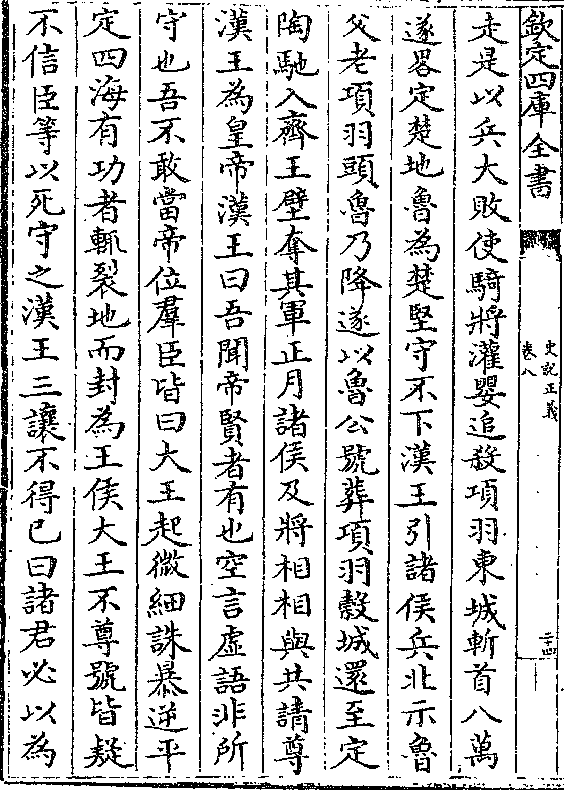 欽定四庫全書
史記正義
卷八
二十四
走是以兵大敗使騎將灌嬰追殺項羽東城斬首八萬
遂畧定楚地魯為楚堅守不下漢王引諸侯兵北示魯
父老項羽頭魯乃降遂以魯公號葬項羽穀城還至定
陶馳入齊王壁奪其軍正月諸侯及將相相與共請尊
漢王為皇帝漢王曰吾聞帝賢者有也空言虛語非所
守也吾不敢當帝位羣臣皆曰大王起微細誅暴逆平
定四海有功者輒裂地而封為王侯大王不尊號皆疑
不信臣等以死守之漢王三讓不得已曰諸君必以為